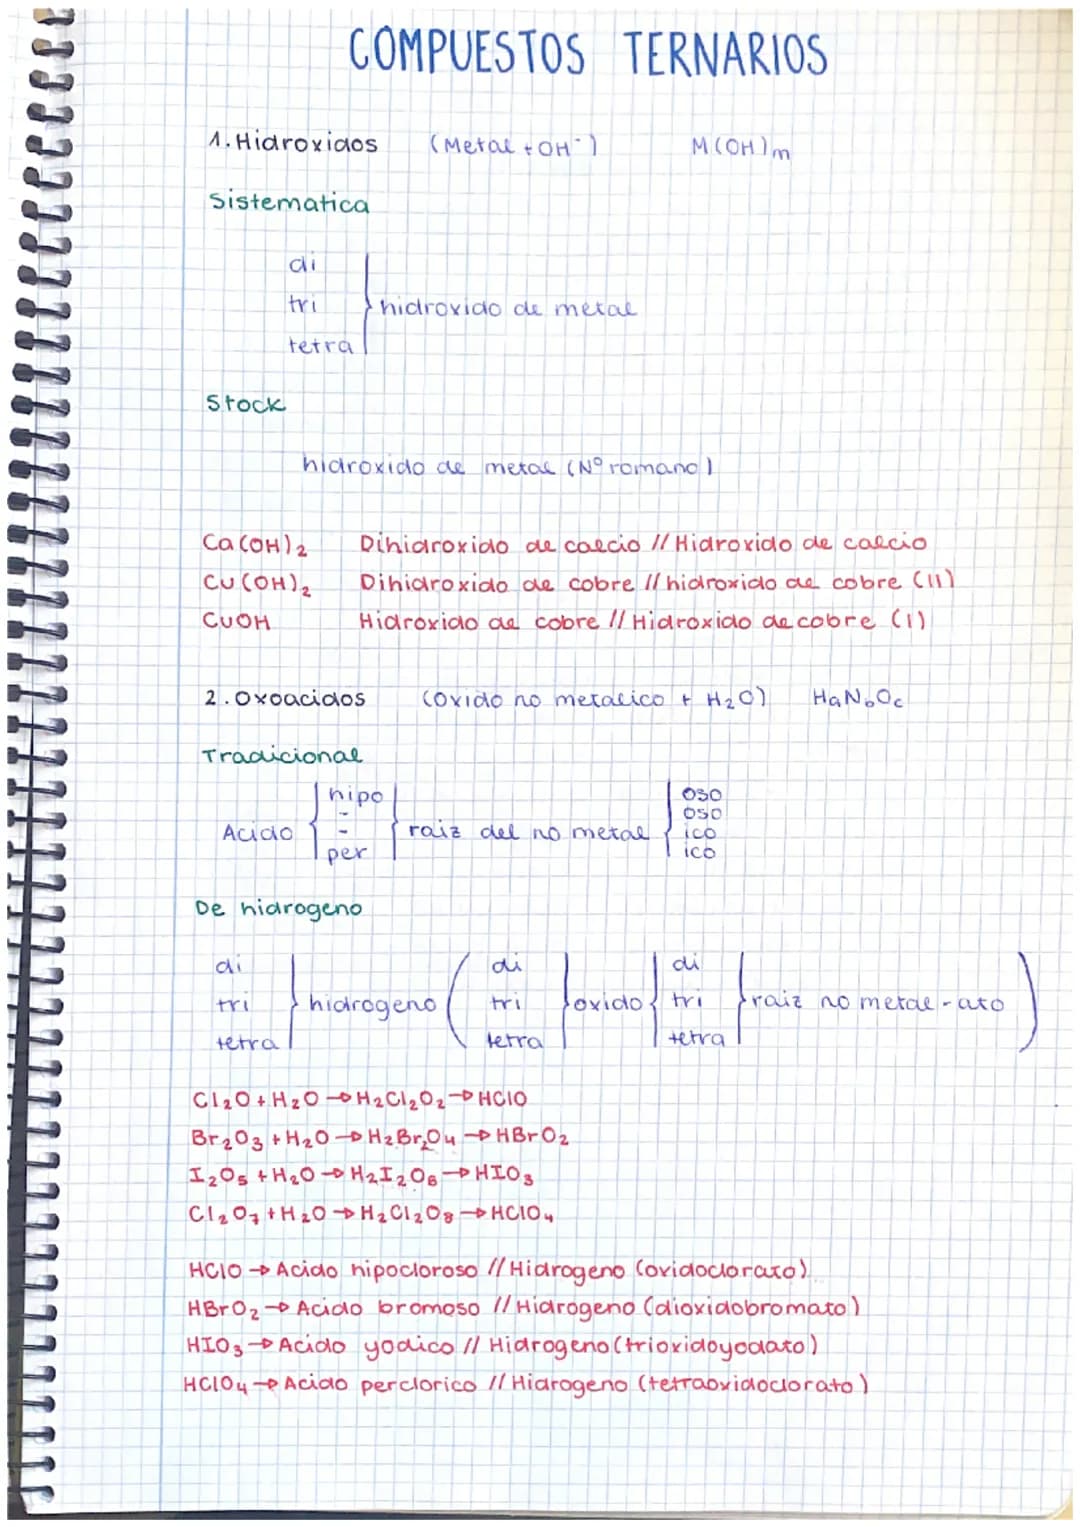 COMPUESTOS TERNARIOS
1. Hidroxidos (Metal + OH⁻) M(OH)m
Sistematica
di
tri } hidroxido de metal
tetra
Stock
hidroxido de metal (Nº romano)
Ca(OH)₂ Dihidroxido de calcio // Hidroxido de calcio
Cu(OH)₂ Dihidroxido de cobre // hidroxido de cobre (II)
CuOH Hidroxido de cobre // Hidroxido de cobre (I)
2. Oxoacidos (Oxido no metalico + H₂O) HaNbOc
Tradicional
hipo oso
- oso
Acido { - } raiz del no metal { ico
per ico
De hidrogeno
di di di
tri } hidrogeno ( tri } oxido { tri } raiz no metal - ato )
tetra tetra tetra
Cl₂O + H₂O → H₂Cl₂O₂ → HClO
Br₂O₃ + H₂O → H₂Br₂O₄ → HBrO₂
I₂O₅ + H₂O → H₂I₂O₆ → HIO₃
Cl₂O₇ + H₂O → H₂Cl₂O₈ → HClO₄
HClO → Acido hipocloroso // Hidrogeno (oxidoclorato)
HBrO₂ → Acido bromoso // Hidrogeno (dioxidobromato)
HIO₃ → Acido yodico // Hidrogeno (trioxidoyodato)
HClO₄ → Acido perclorico // Hidrogeno (tetraoxidoclorato)